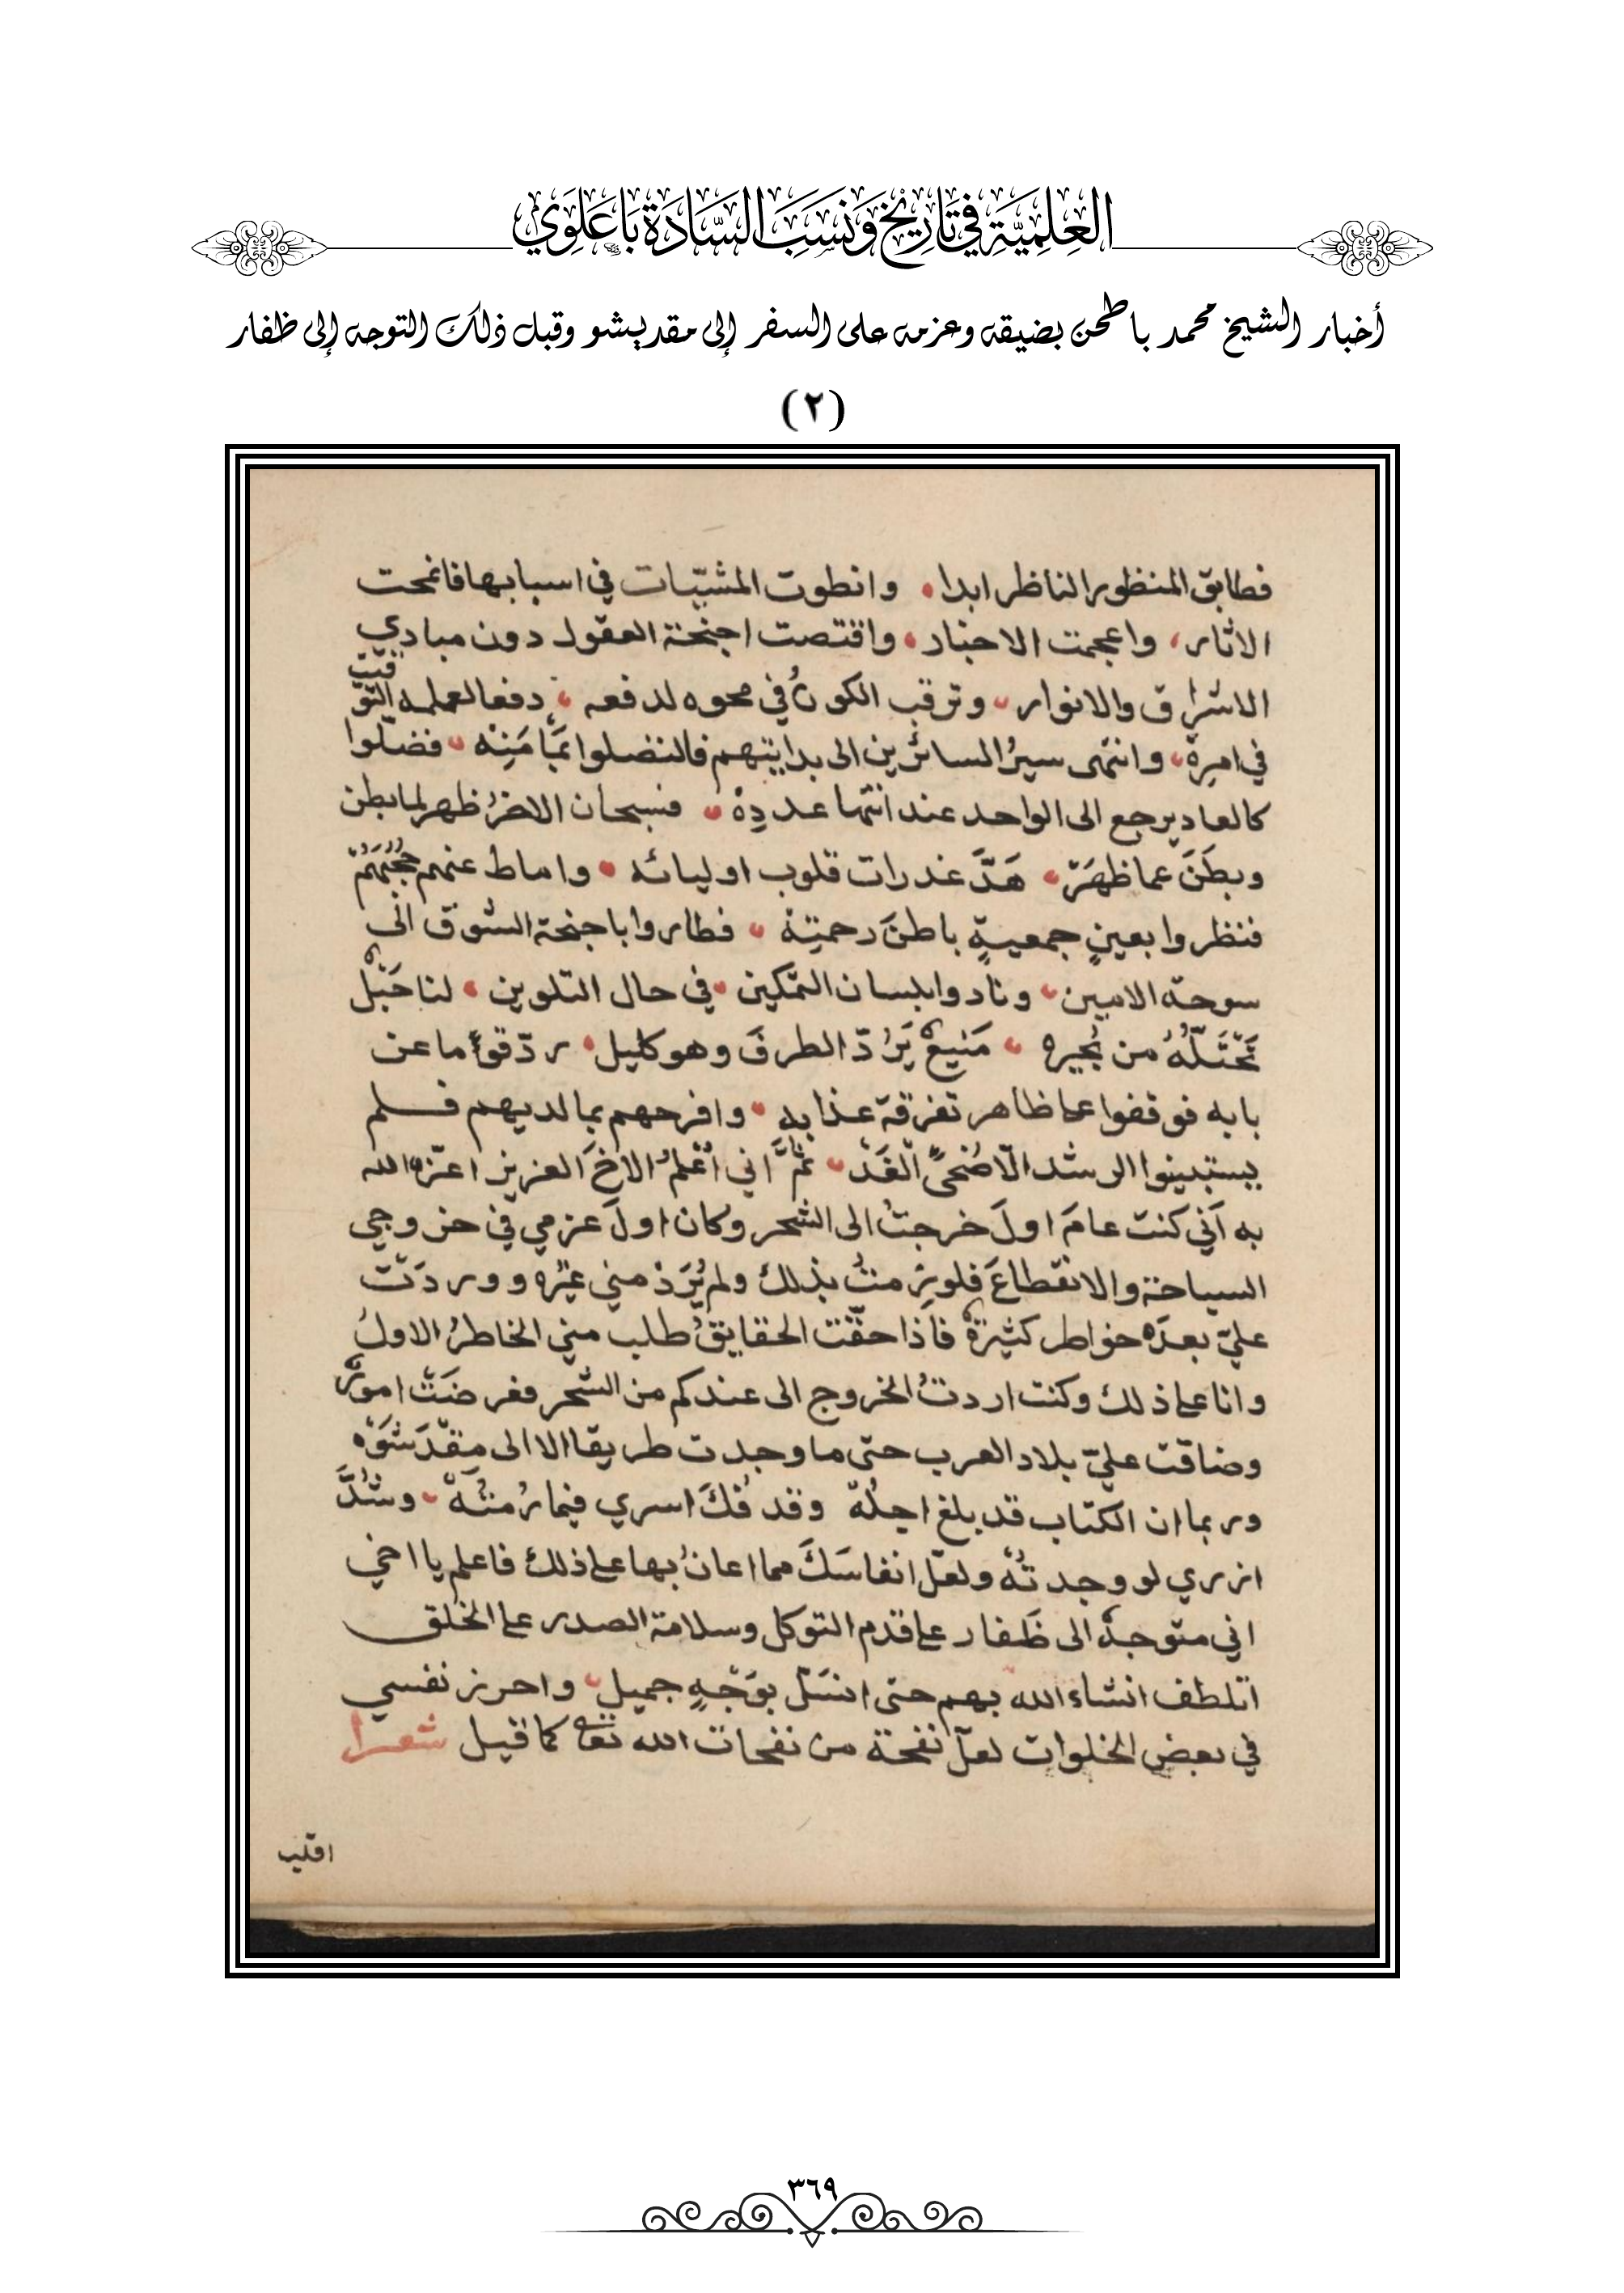 العِلِمِيَّةِ في تَارِيخ وَنَسَبَ السَّادَةِ بَاعَلَوِي
أخبار الشيخ محمد باطحن بضيقه وعزمه على السفر إلى مقديشو وقبل ذلك التوجه إلى ظفار
(٢)
فطابق المنظور الناظر ابدا وانطوت في اسبابها فانمحت
الاثار، واعجمت الاخبار واقتصت اجنحة العقول دون مبادي
الاشراق والانوار وترقب الكونُ في محوه لدفعه دفعا
في امرِهْ وانتهى سيرُ السائرين الى بدايتهم
كالعاد يرجع الى الواحد عند انتها عددِهْ فسبحان ظهر لما بطن
وبطَنَ عما ظهَرَ هَدَّ غدرات قلوب اوليائه واماط عنهم حُجُبَهُمْ
فنظروا بعينٍ جمعيةٍ باطنَ رحمتِهْ فطاروا باجنحة الشوق الى
سوحة الامين ونادوا بلسان التمكين في حال التلوين لنا جَبَلٌ
يَحْتَلّهُ من نُجيره مَنيعٌ يَرُدّ الطرفَ وهو كليل ردّ قوماً عن
بابه فوقفوا على ظاهر تفرقة عذابه وافرحهم بما لديهم فلم
يستبينوا الرشد الّا ضُحىً الْغَدْ ثمَّ اني أعْلمُ الاخَ العزيز اعزّه الله
به أني كنت عامَ اولَ خرجتُ الى الشحر وكان اولَ عزمي في خروجي
السياحة والانقطاعَ بذلك ولم يُرَدْ مني غيره ووردَتْ
عليّ بعدَه خواطر كثيرةٌ فاذا حقّت الحقايقُ طلب مني الخاطرُ الاولُ
وانا على ذلك وكنت اردتُ الخروج الى عندكم من الشحر فعرضَتْ امورٌ
وضاقت عليّ بلاد العرب حتى ما وجدت طريقا الا الى مقْدَشَوْه
وربما ان الكتاب قد بلغ اجلَهْ وقد فُكَّ اسري فيما رُمتُهْ وشُدَّ
ازري لو وجدتُهْ ولعل انفاسَكَ مما اعانُ بها على ذلك فاعلم يا اخي
اني متوجهٌ الى ظَفار على قدم التوكل وسلامة الصدر على الخلق
اتلطف انشاء الله بهم حتى انسَلّ بوَجْهٍ جميلٍ واحرز نفسي
في بعض الخلوات لعلّ نفحة من نفحات الله تعالى كما قيل شعرا
اقلب
٣٦٩